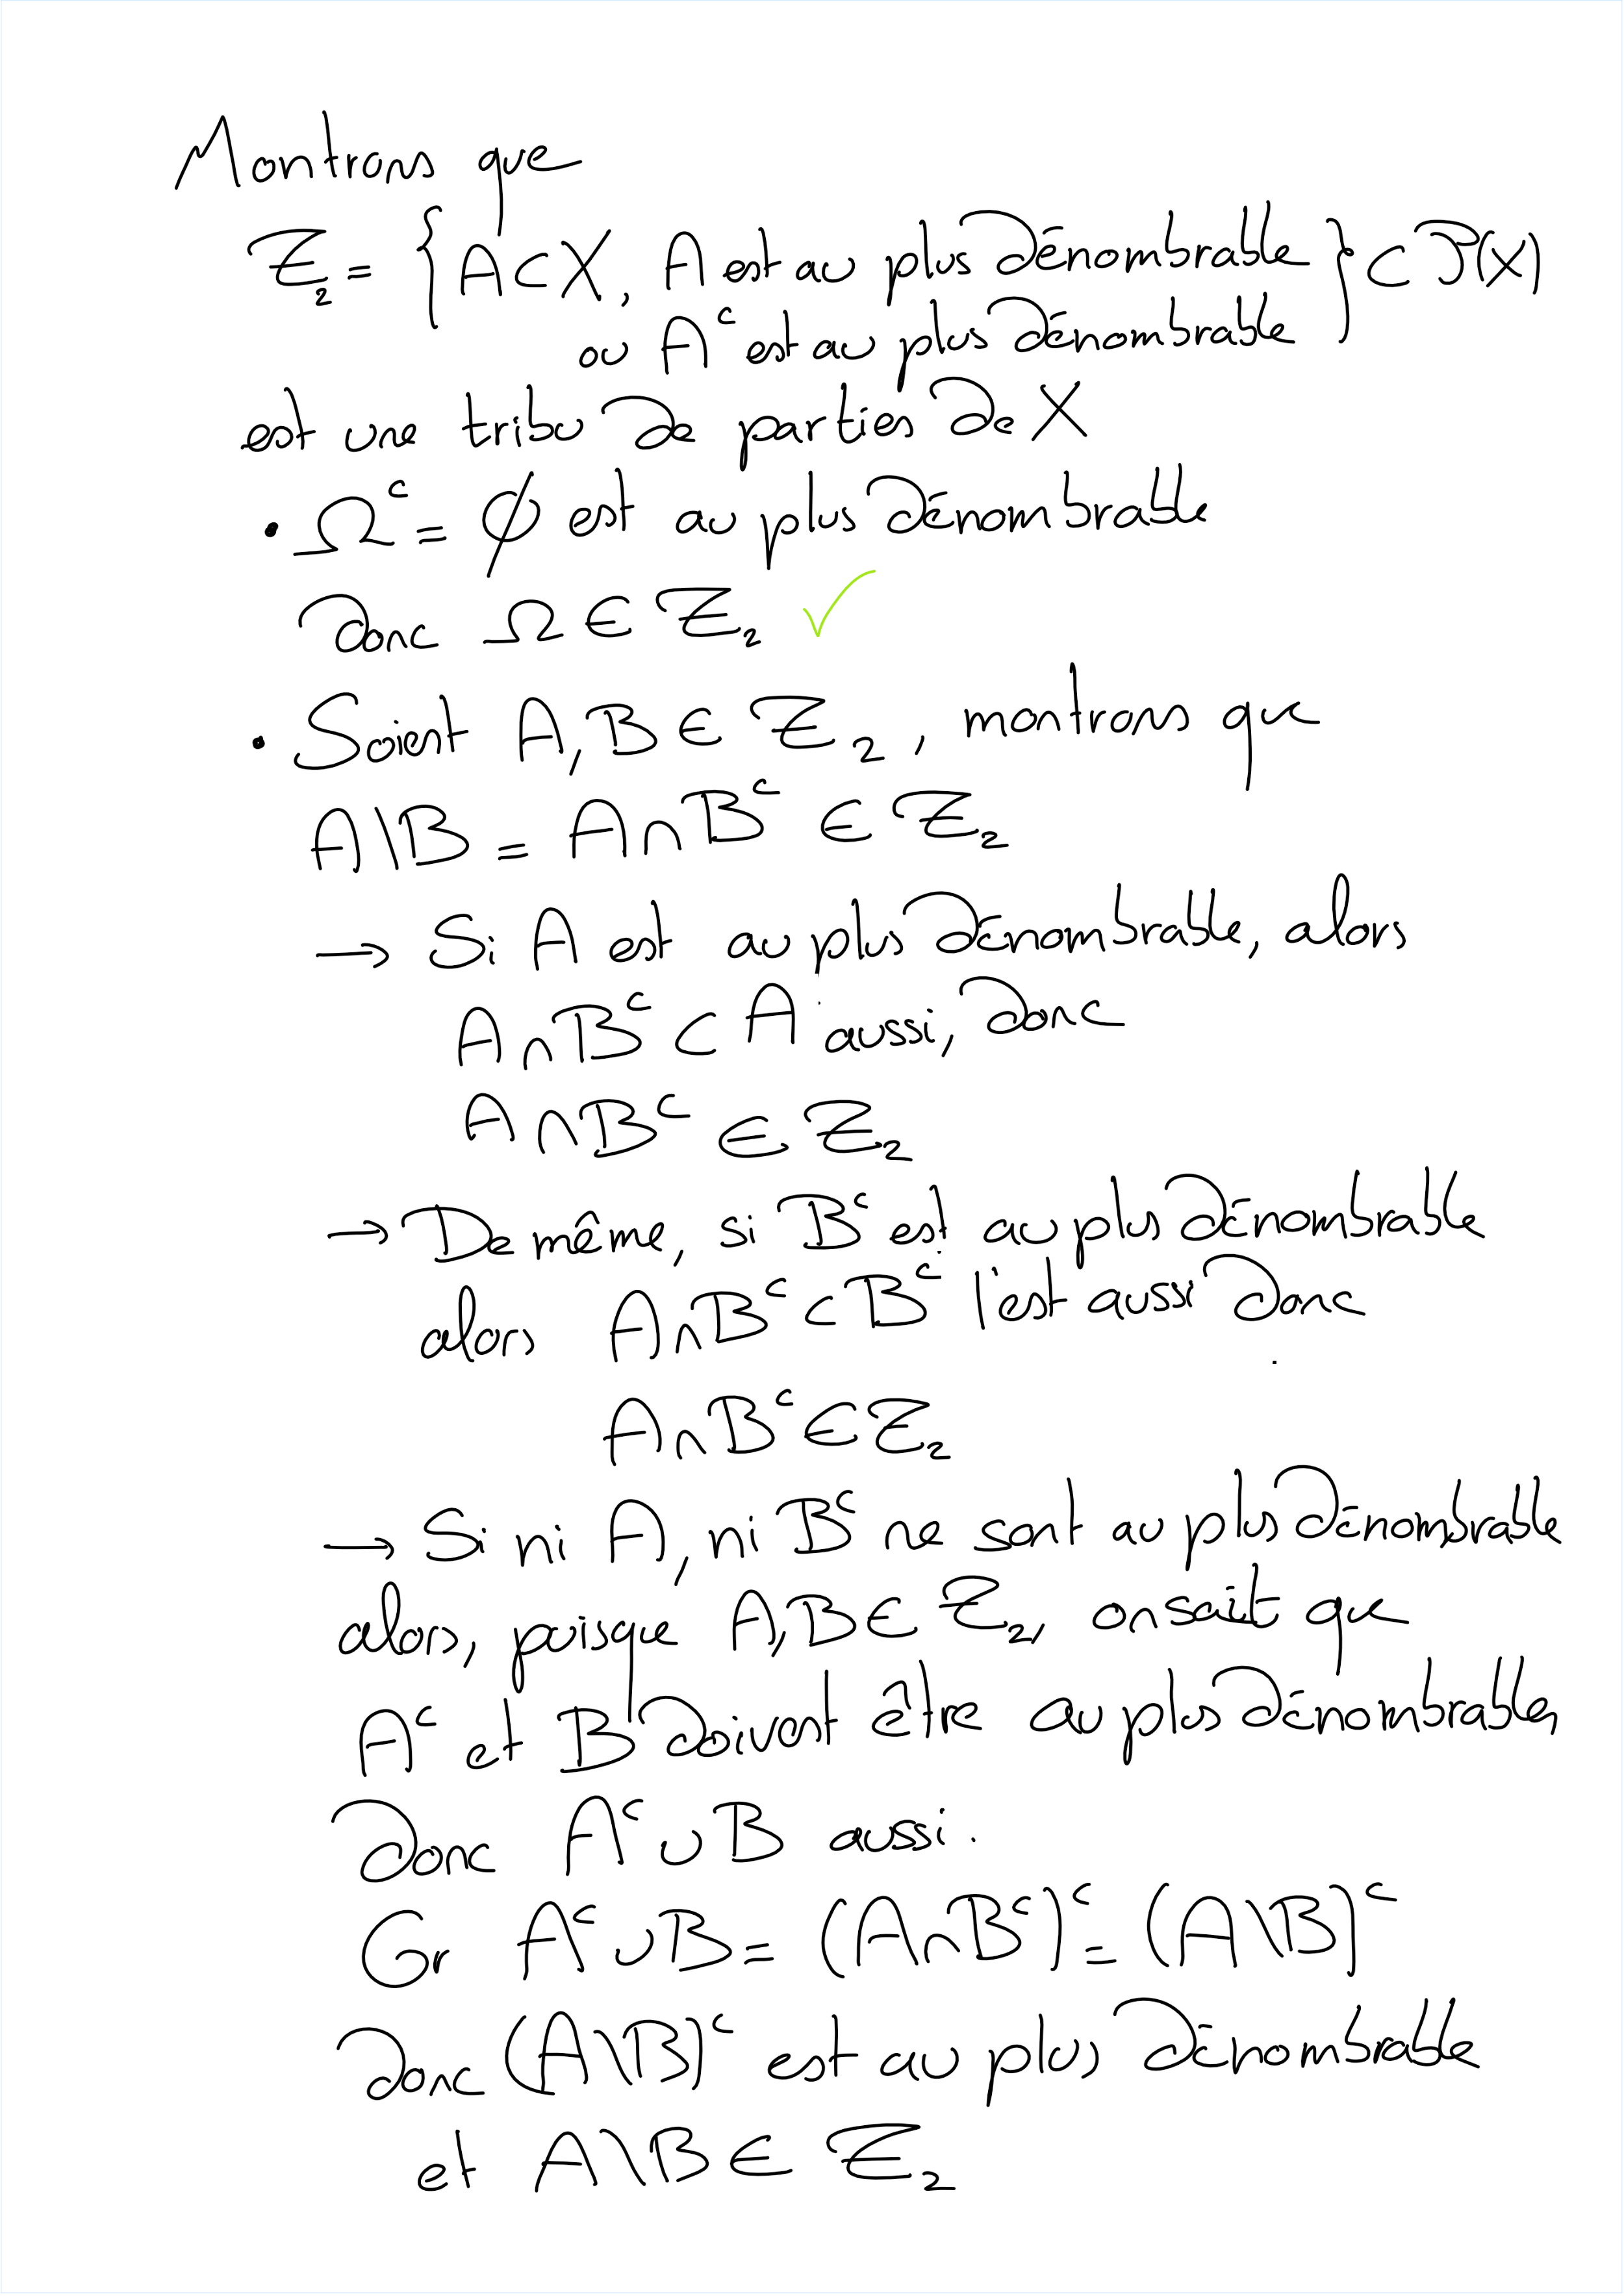 Montrons que
Z₂ = { A ⊂ X, A est au plus dénombrable } ⊂ P(X)
ou Aᶜ est au plus dénombrable
est une tribu de parties de X
• Ωᶜ = ∅ est au plus dénombrable
donc Ω ∈ Z₂ ✓
• Soient A, B ∈ Z₂, montrons que
A\B = A∩Bᶜ ∈ Z₂
→ Si A est au plus dénombrable, alors
A∩Bᶜ ⊂ A aussi, donc
A∩Bᶜ ∈ Z₂
→ De même, si Bᶜ est au plus dénombrable
alors A∩Bᶜ ⊂ Bᶜ l'est aussi donc
A∩Bᶜ ∈ Z₂
→ Si ni A, ni Bᶜ ne sont au plus dénombrable
alors, puisque A, B ∈ Z₂, on sait que
Aᶜ et B doivent être au plus dénombrables,
donc Aᶜ ∪ B aussi.
Or Aᶜ ∪ B = (A∩Bᶜ)ᶜ = (A\B)ᶜ
donc (A\B)ᶜ est au plus dénombrable
et A\B ∈ Z₂